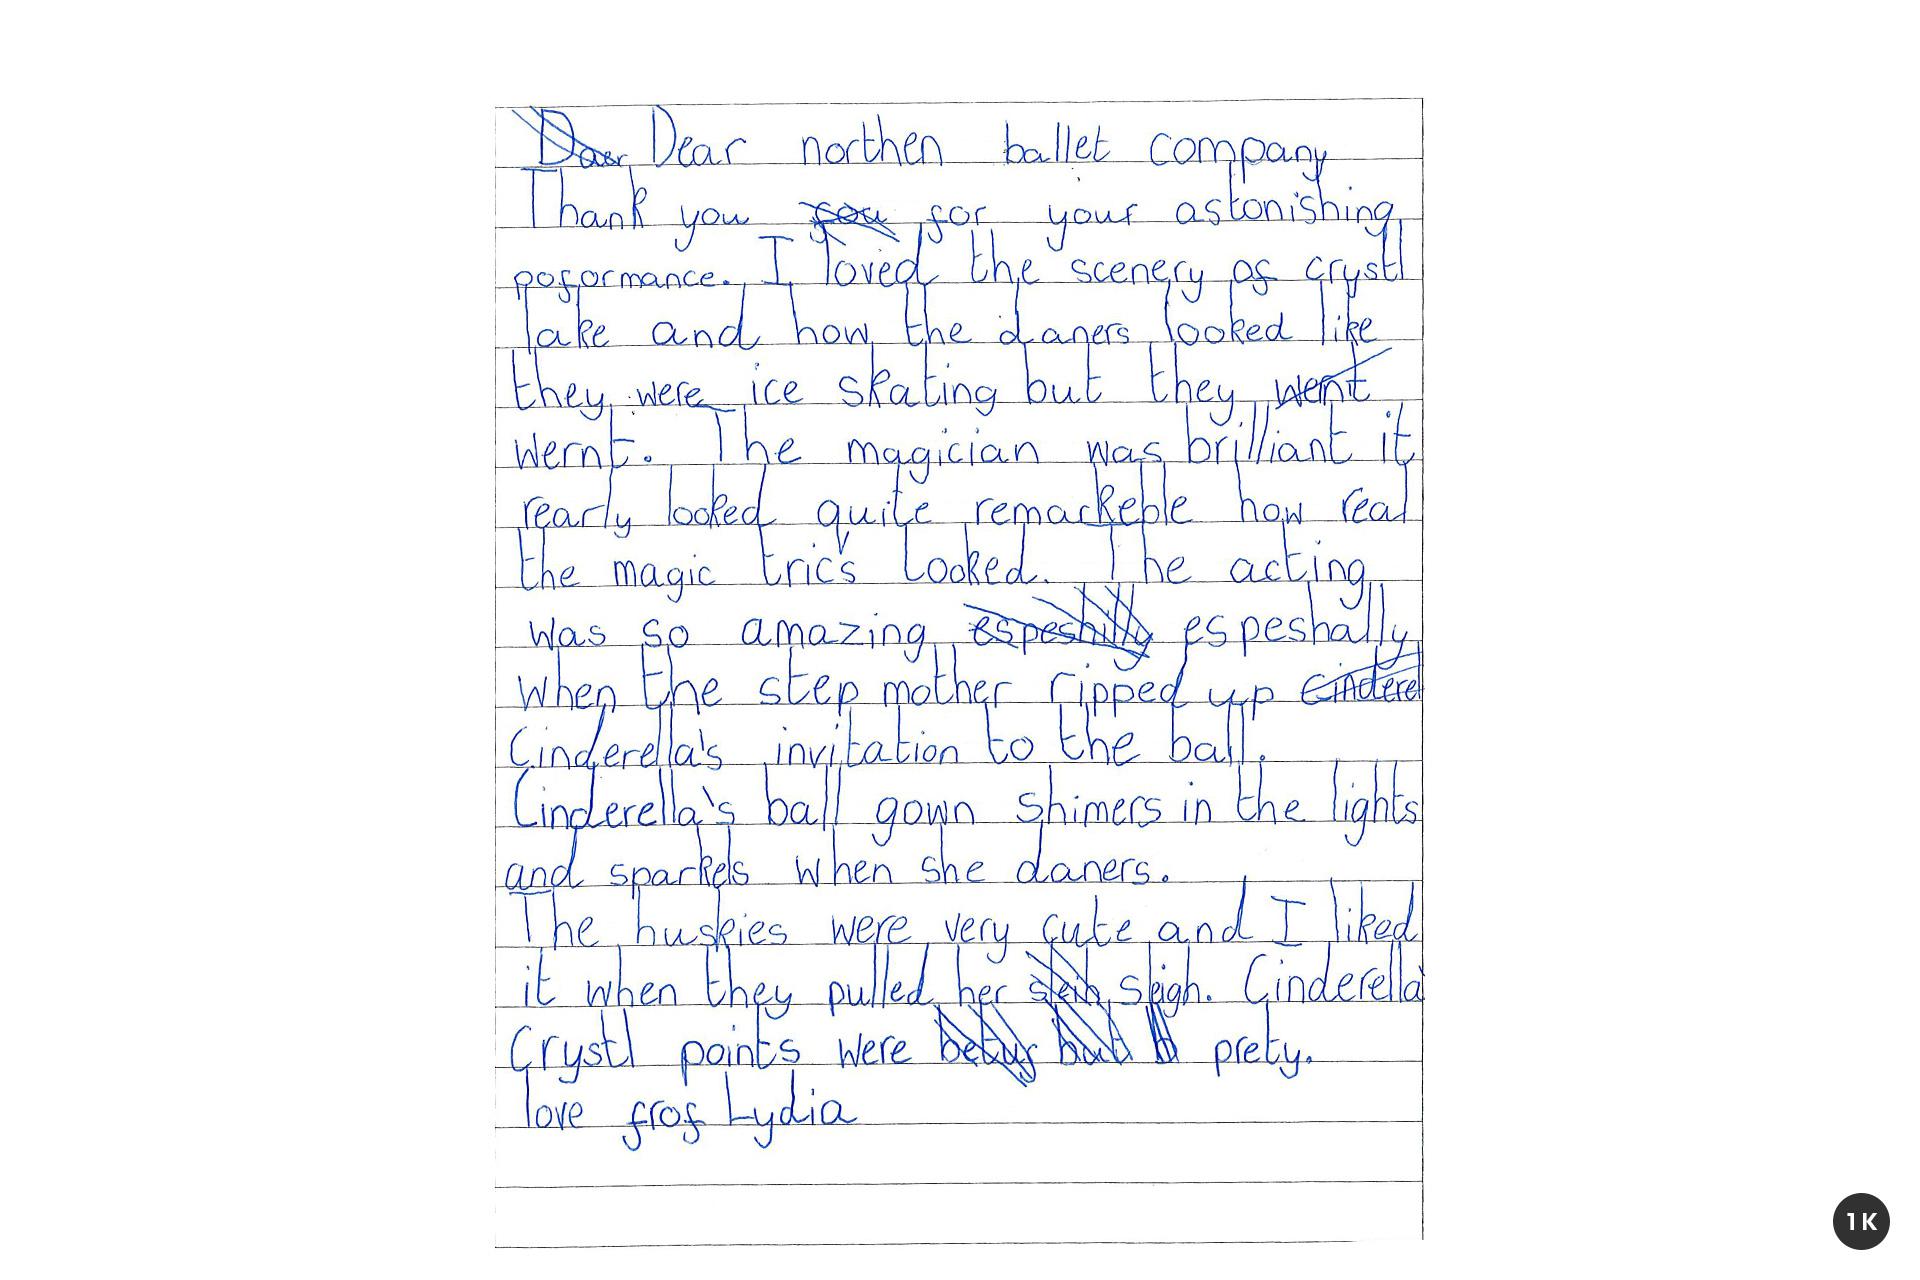 Dear northen ballet company
Thank you for your astonishing
poformance. I loved the scenery of crystl
lake and how the daners looked like
they were ice skating but they went
wernt. The magician was brilliant it
rearly looked quite remarkeble how real
the magic tric's looked. The acting
was so amazing espeshilly espeshally
when the step mother ripped up Cinderel
Cinderella's invitation to the ball.
Cinderella's ball gown shimers in the lights
and sparkels when she daners.
The huskies were very cute and I liked
it when they pulled her sleigh. Cinderella's
Crystl points were prety.
love frof Lydia
1K